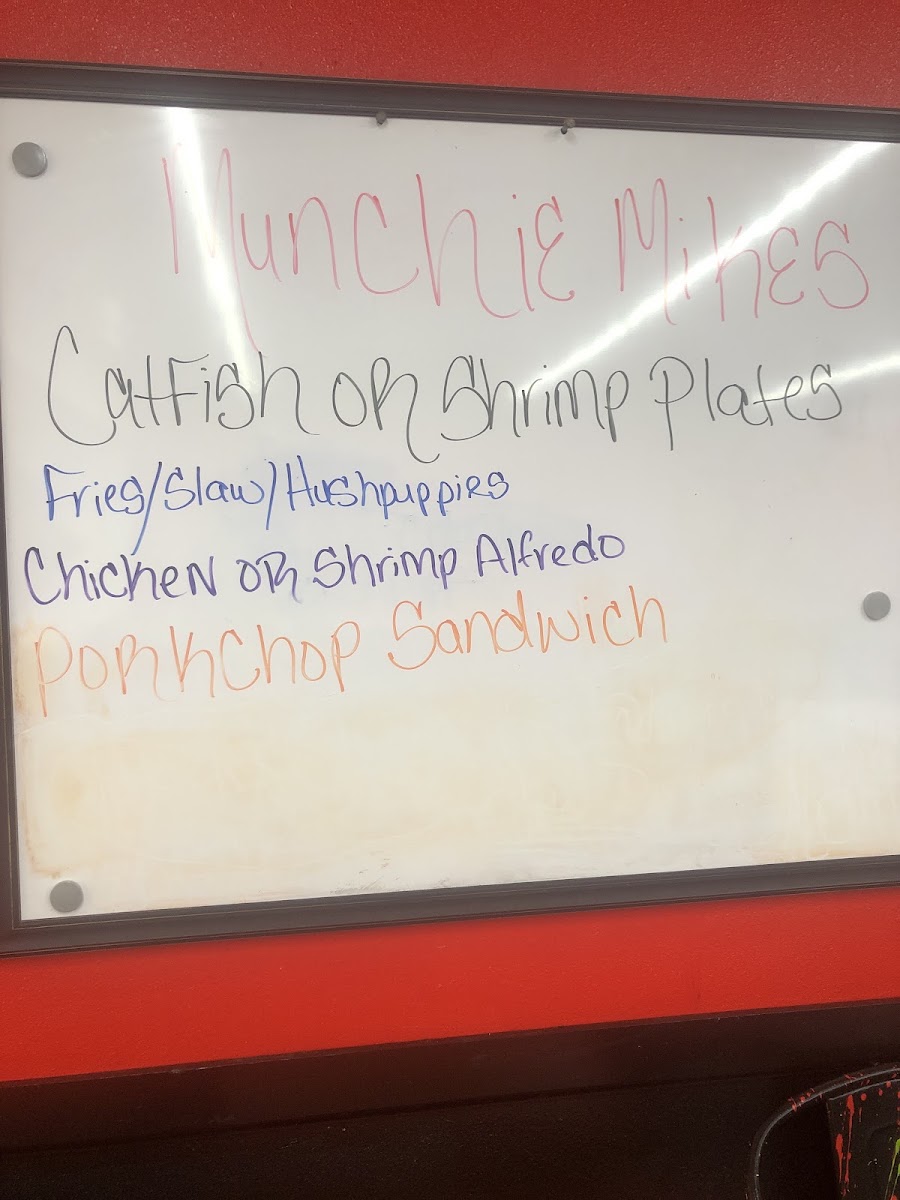 Munchie Mikes
Catfish or Shrimp Plates
Fries/Slaw/Hushpuppies
Chicken or Shrimp Alfredo
Porkchop Sandwich